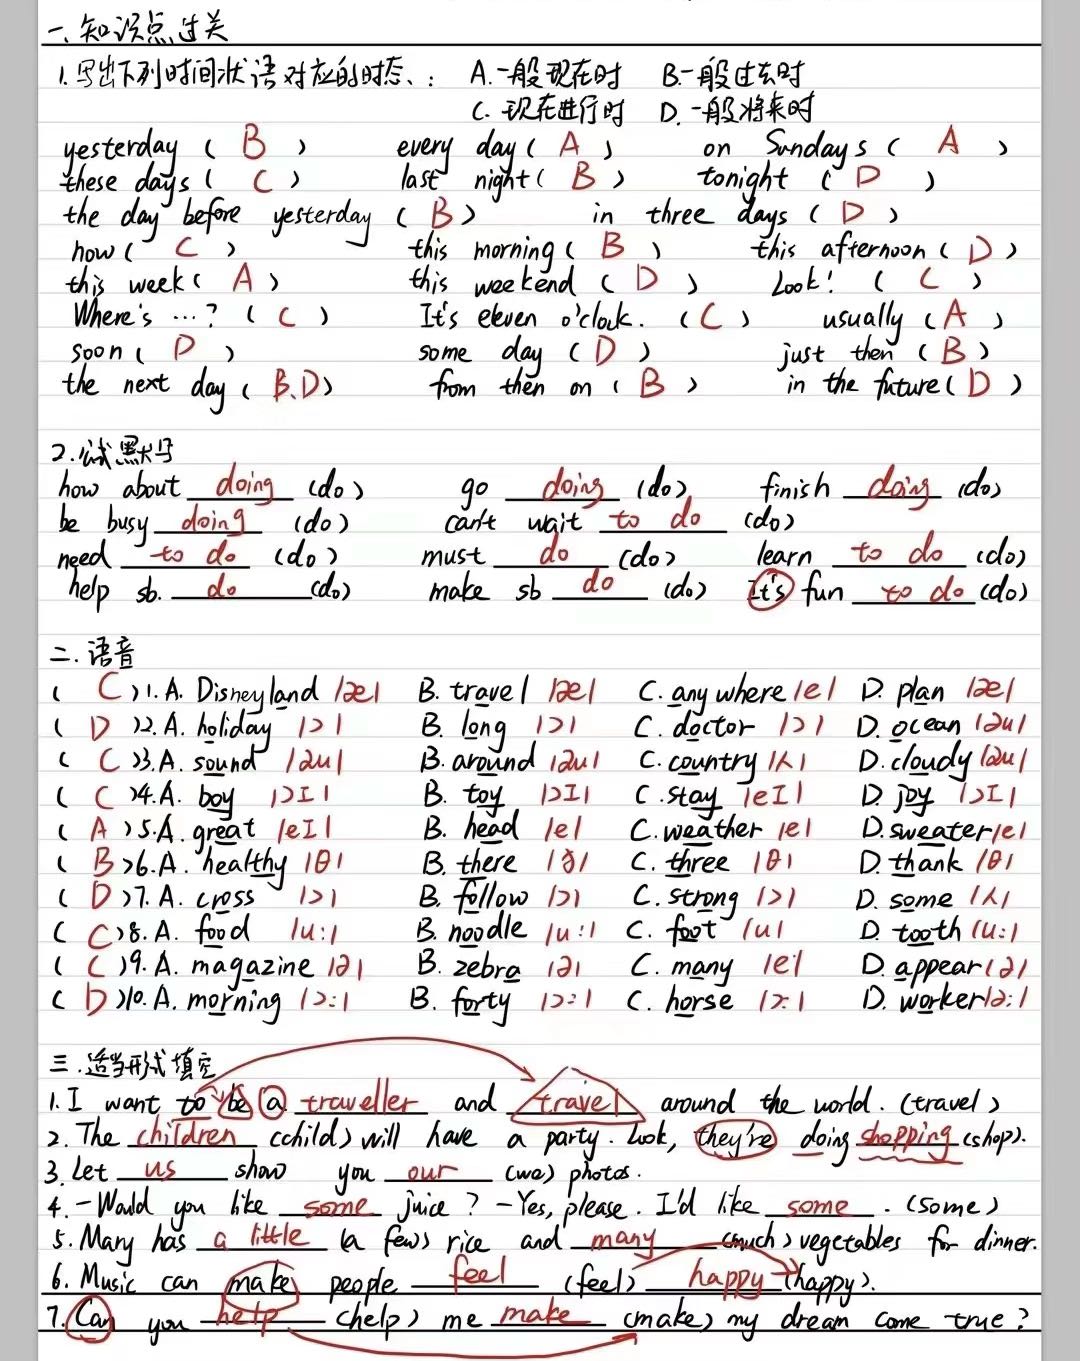 一、知识点过关
1.写出下列时间状语对应的时态、: A.一般现在时 B.一般过去时
C.现在进行时 D.一般将来时
yesterday ( B ) every day ( A ) on Sundays ( A )
these days ( C ) last night ( B ) tonight ( D )
the day before yesterday ( B ) in three days ( D )
how ( C ) this morning ( B ) this afternoon ( D )
this week ( A ) this weekend ( D ) Look! ( C )
Where's ...? ( C ) It's eleven o'clock. ( C ) usually ( A )
soon ( D ) some day ( D ) just then ( B )
the next day ( B.D ) from then on ( B ) in the future ( D )
2.公式默写
how about doing (do) go doing (do) finish doing (do)
be busy doing (do) can't wait to do (do)
need to do (do) must do (do) learn to do (do)
help sb. do (do) make sb do (do) It's fun to do (do)
二.语音
( C )1.A. Disneyland /æ/ B. travel /æ/ C. anywhere /e/ D. plan /æ/
( D )2.A. holiday /ɔ/ B. long /ɔ/ C. doctor /ɔ/ D. ocean /əu/
( C )3.A. sound /au/ B. around /au/ C. country /ʌ/ D. cloudy /au/
( C )4.A. boy /ɔɪ/ B. toy /ɔɪ/ C. stay /eɪ/ D. joy /ɔɪ/
( A )5.A. great /eɪ/ B. head /e/ C. weather /e/ D. sweater /e/
( B )6.A. healthy /θ/ B. there /ð/ C. three /θ/ D. thank /θ/
( D )7.A. cross /ɔ/ B. follow /ɔ/ C. strong /ɔ/ D. some /ʌ/
( C )8.A. food /u:/ B. noodle /u:/ C. foot /u/ D. tooth /u:/
( C )9.A. magazine /ə/ B. zebra /ə/ C. many /e/ D. appear /ə/
( D )10.A. morning /ɔ:/ B. forty /ɔ:/ C. horse /ɔ:/ D. worker /ə:/
三.适当形式填空
1.I want to be a traveller and travel around the world. (travel)
2.The children (child) will have a party. Look, they're doing shopping (shop).
3.Let us show you our (we) photos.
4.-Would you like some juice? -Yes, please. I'd like some. (some)
5.Mary has a little (a few) rice and many (much) vegetables for dinner.
6.Music can make people feel (feel) happy (happy).
7.Can you help (help) me make (make) my dream come true?